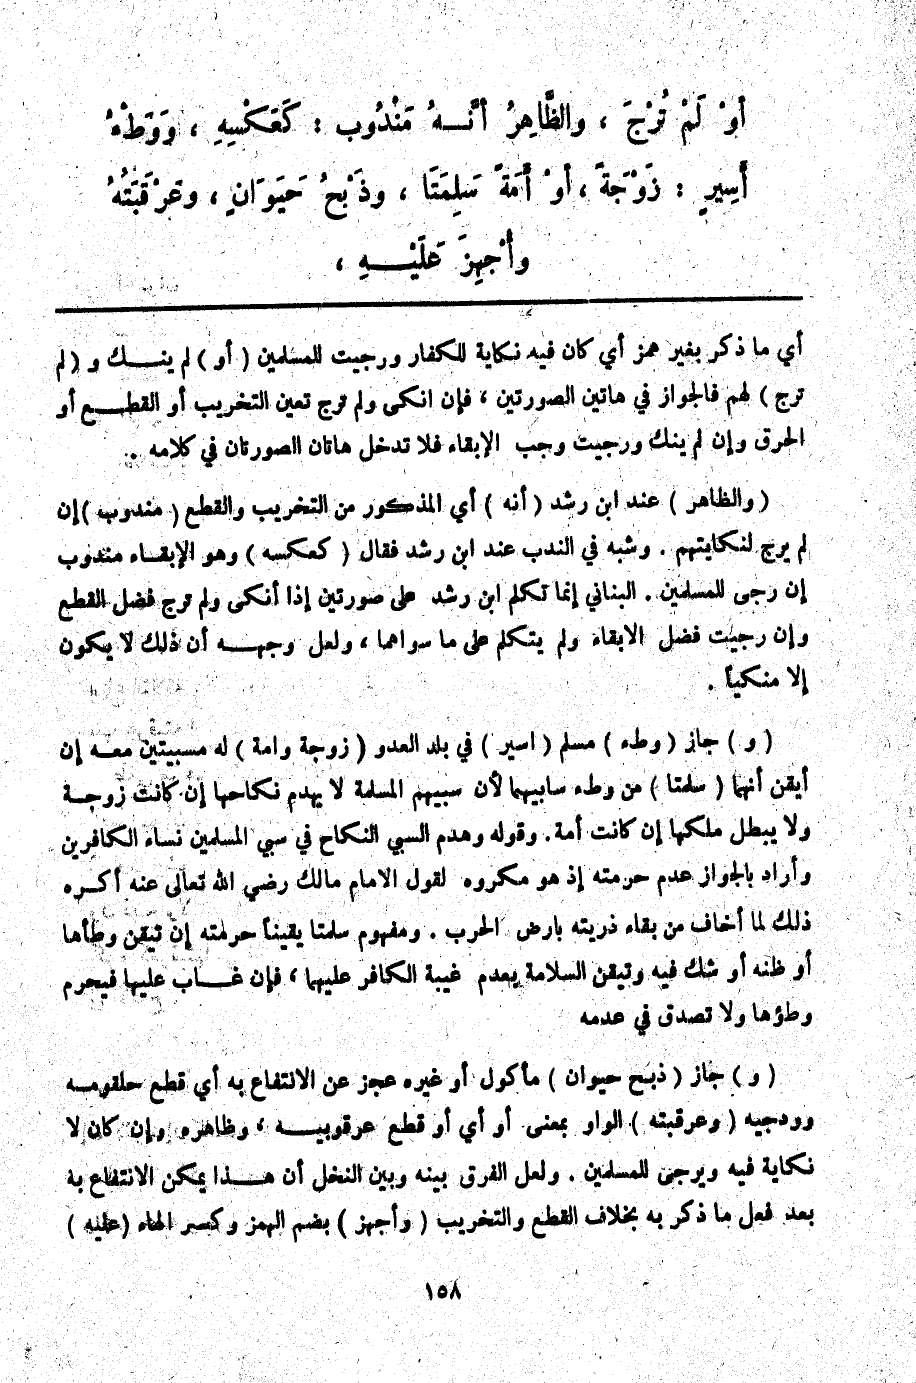 أَوْ لَمْ تُرْجَ ، والظَّاهِرُ أَنَّـهُ مَنْدُوب : كَعَكْسِهِ ، وَوَطْءُ
أَسِيرٍ : زَوْجَةً ، أَوْ أَمَةً سَلِمَتَا ، وذَبْحُ حَيَوَانٍ ، وعَرْقَبَتُهُ
وأُجْهِزَ عَلَيْـهِ ،
أي ما ذكر بغير همز أي كان فيه نكاية للكفار ورجيت للمسلمين ( أو ) لم ينـك و ( لم
ترج ) لهم فالجواز في هاتين الصورتين ، فإن انكى ولم ترج تعين التخريب أو القطـع أو
الحرق وإن لم ينك ورجيت وجب الإبقاء فلا تدخل هاتان الصورتان في كلامه .
( والظاهر ) عند ابن رشد ( أنه ) أي المذكور من التخريب والقطع ( مندوب ) إن
لم يرج لنكايتهم . وشبه في الندب عند ابن رشد فقال ( كعكسه ) وهو الإبقـاء مندوب
إن رجى للمسلمين . البناني إنما تكلم ابن رشد على صورتين إذا أنكى ولم ترج فضل القطع
وإن رجيت فضل الابقاء ولم يتكلم على ما سواهما ، ولعل وجهـه أن ذلك لا يكون
إلا منكياً .
( و ) جاز ( وطء ) مسلم ( اسير ) في بلد العدو ( زوجة وامة ) له مسبيتين معـه إن
أيقن أنهما ( سلمتا ) من وطء سابيهما لأن سبيهم المسلمة لا يهدم نكاحها إن كانت زوجـة
ولا يبطل ملكها إن كانت أمة . وقوله وهدم السبي النكاح في سبي المسلمين نساء الكافرين
وأراد بالجواز عدم حرمته إذ هو مكروه لقول الامام مالك رضي الله تعالى عنه أكـره
ذلك لما أخاف من بقاء ذريته بارض الحرب . ومفهوم سلمتا يقيناً حرمته إن تيقن وطأها
أو ظنه أو شك فيه وتيقن السلامة بعدم غيبة الكافر عليهما ، فإن غـاب عليها فيحرم
وطؤها ولا تصدق في عدمه
( و ) جاز ( ذبح حيوان ) مأكول أو غيره عجز عن الانتفاع به أي قطع حلقومـه
وودجيه ( وعرقبته ) الواو بمعنى أو أي أو قطع عرقوبيـه ، وظاهره وإن كان لا
نكاية فيه ويرجى للمسلمين . ولعل الفرق بينه وبين النخل أن هـذا يمكن الانتفاع به
بعد فعل ما ذكر به بخلاف القطع والتخريب ( وأجهز ) بضم الهمز وكسر الهاء ( عليه )
١٥٨